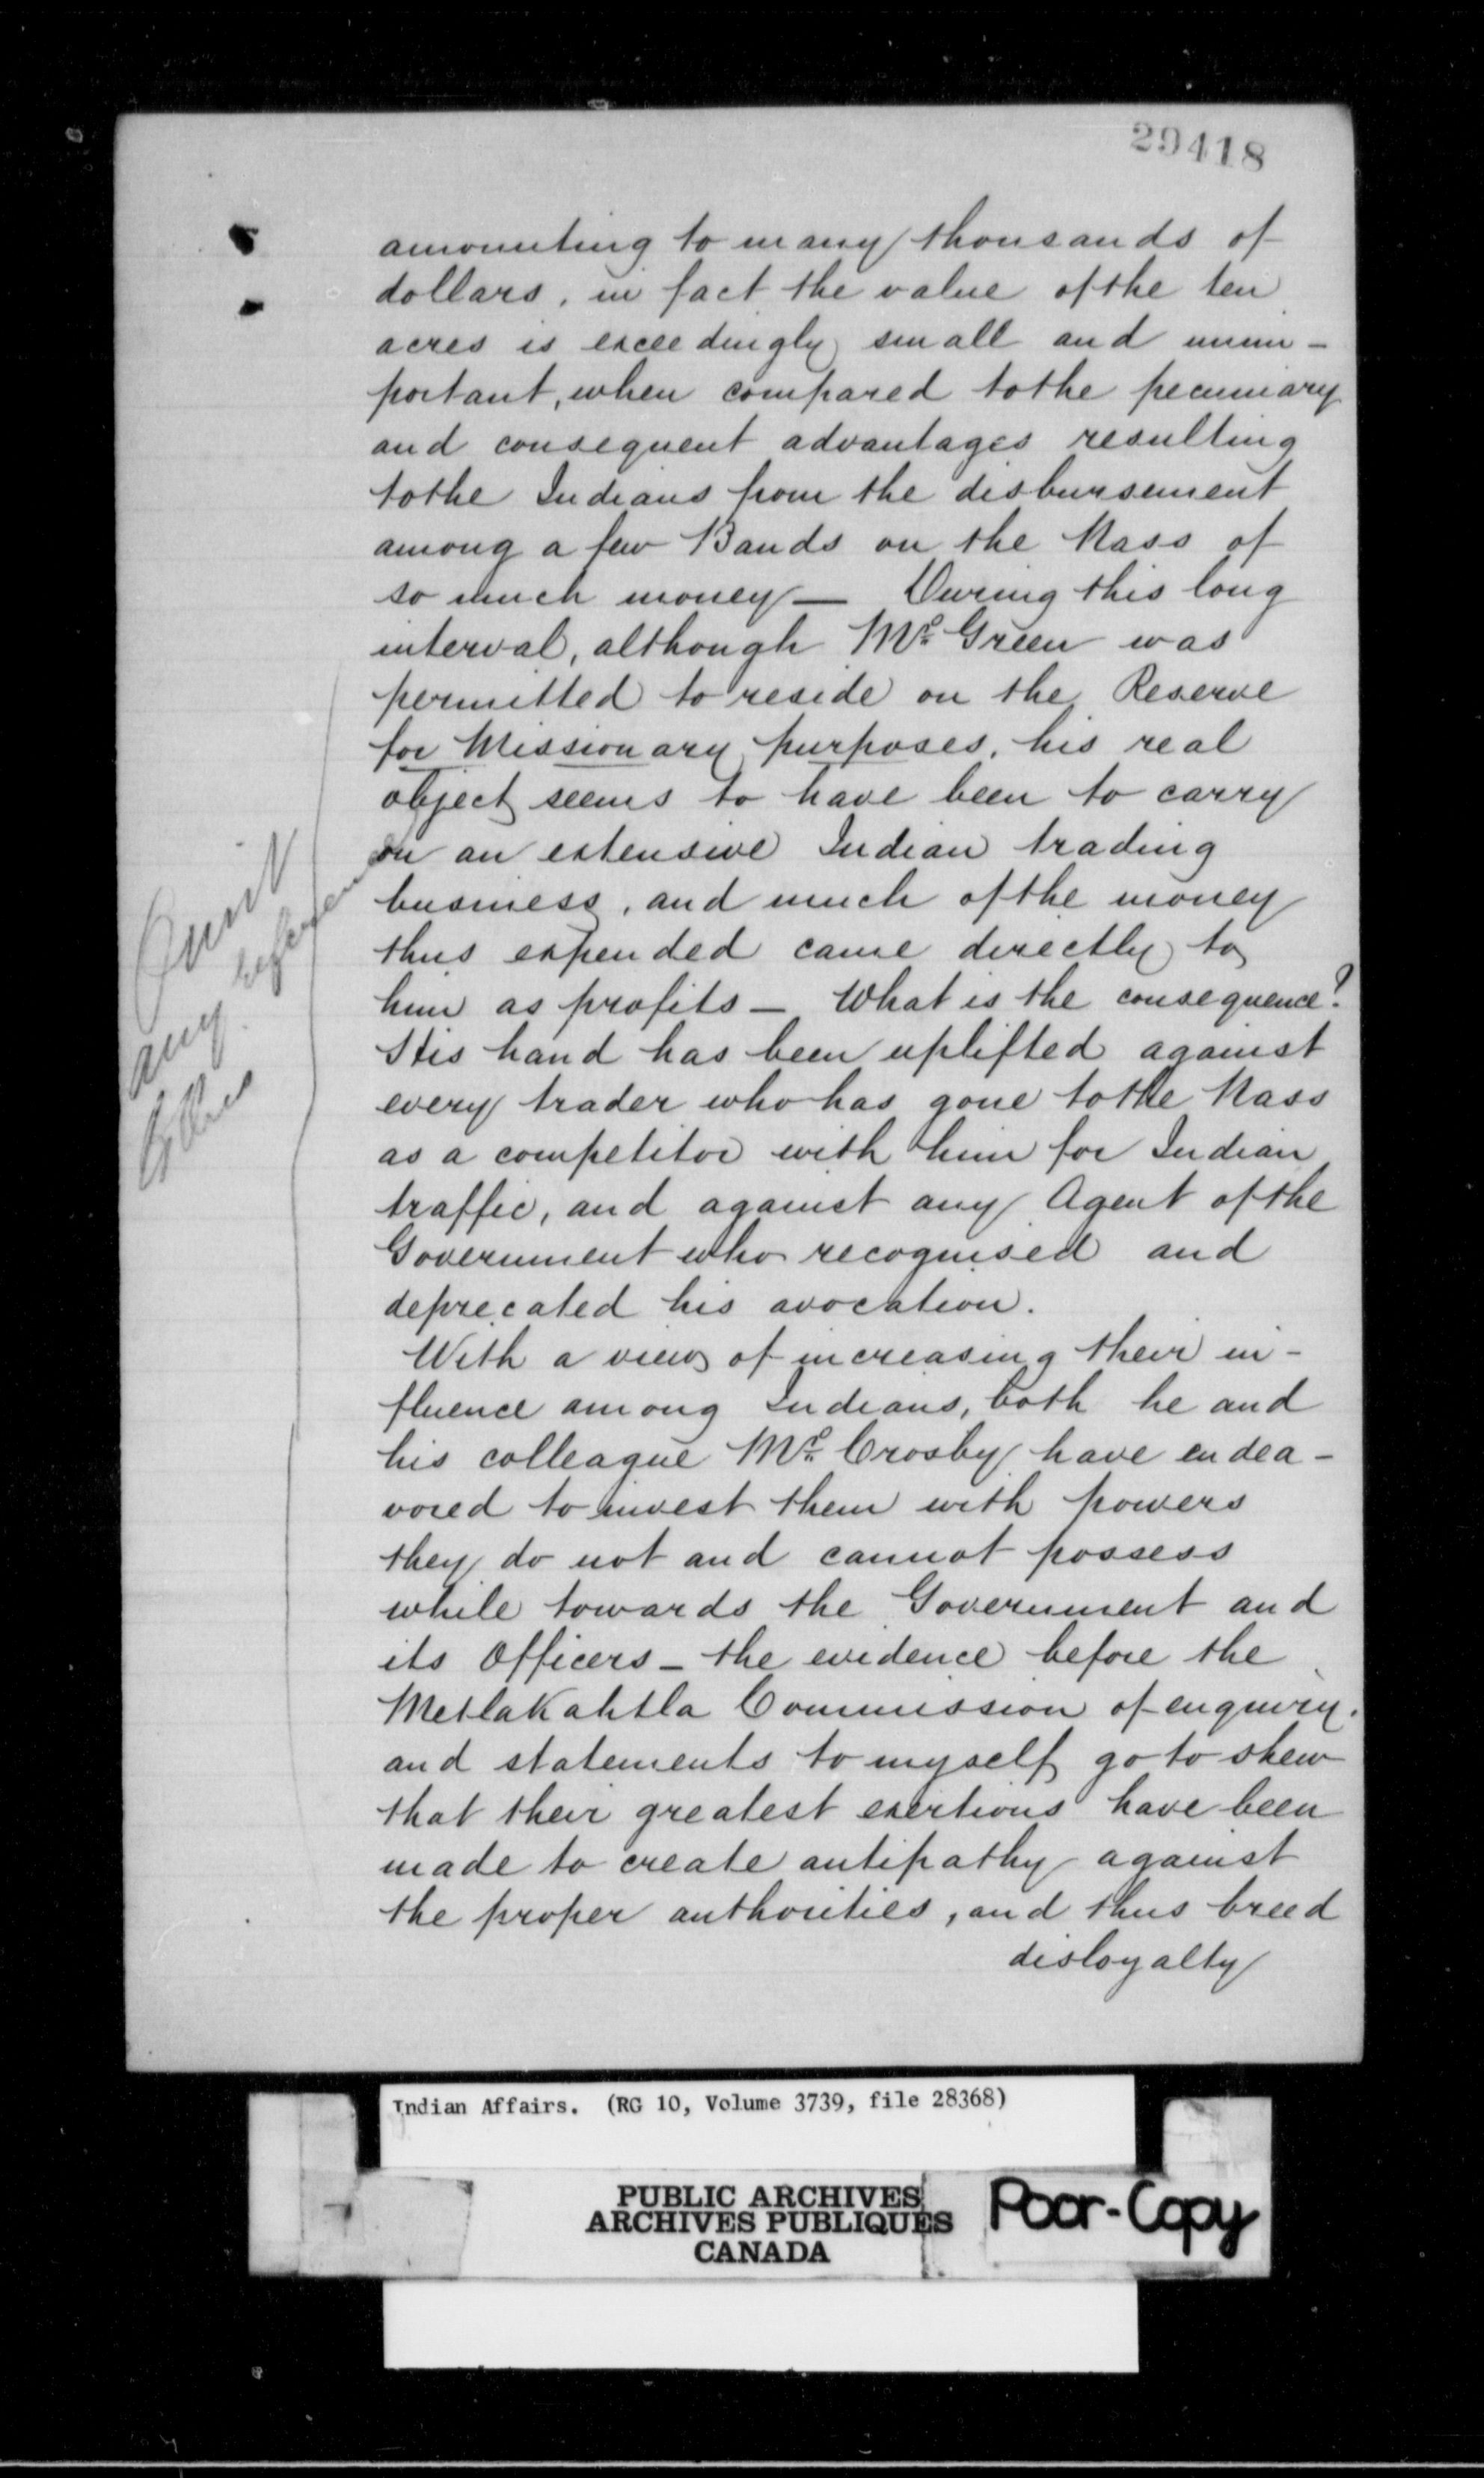 29418
amounting to many thousands of
dollars, in fact the value of the ten
acres is exceedingly small and unim-
portant, when compared to the pecuniary
and consequent advantages resulting
to the Indians from the disbursement
among a few Bands on the Nass of
so much money — During this long
interval, although Mr. Green was
permitted to reside on the Reserve
for Missionary purposes, his real
object seems to have been to carry
on an extensive Indian trading
business, and much of the money
thus expended came directly to
him as profits — What is the consequence?
His hand has been uplifted against
every trader who has gone to the Nass
as a competitor with him for Indian
traffic, and against any Agent of the
Government who recognised and
deprecated his avocation.
With a view of increasing their in-
fluence among Indians, both he and
his colleague Mr. Crosby have endea-
vored to invest them with powers
they do not and cannot possess
while towards the Government and
its Officers — the evidence before the
Metlakahtla Commission of enquiry.
and statements to myself go to shew
that their greatest exertions have been
made to create antipathy against
the proper authorities, and thus breed
disloyalty
Omit
any reference
to this
Indian Affairs. (RG 10, Volume 3739, file 28368)
PUBLIC ARCHIVES
ARCHIVES PUBLIQUES
CANADA
Poor-Copy